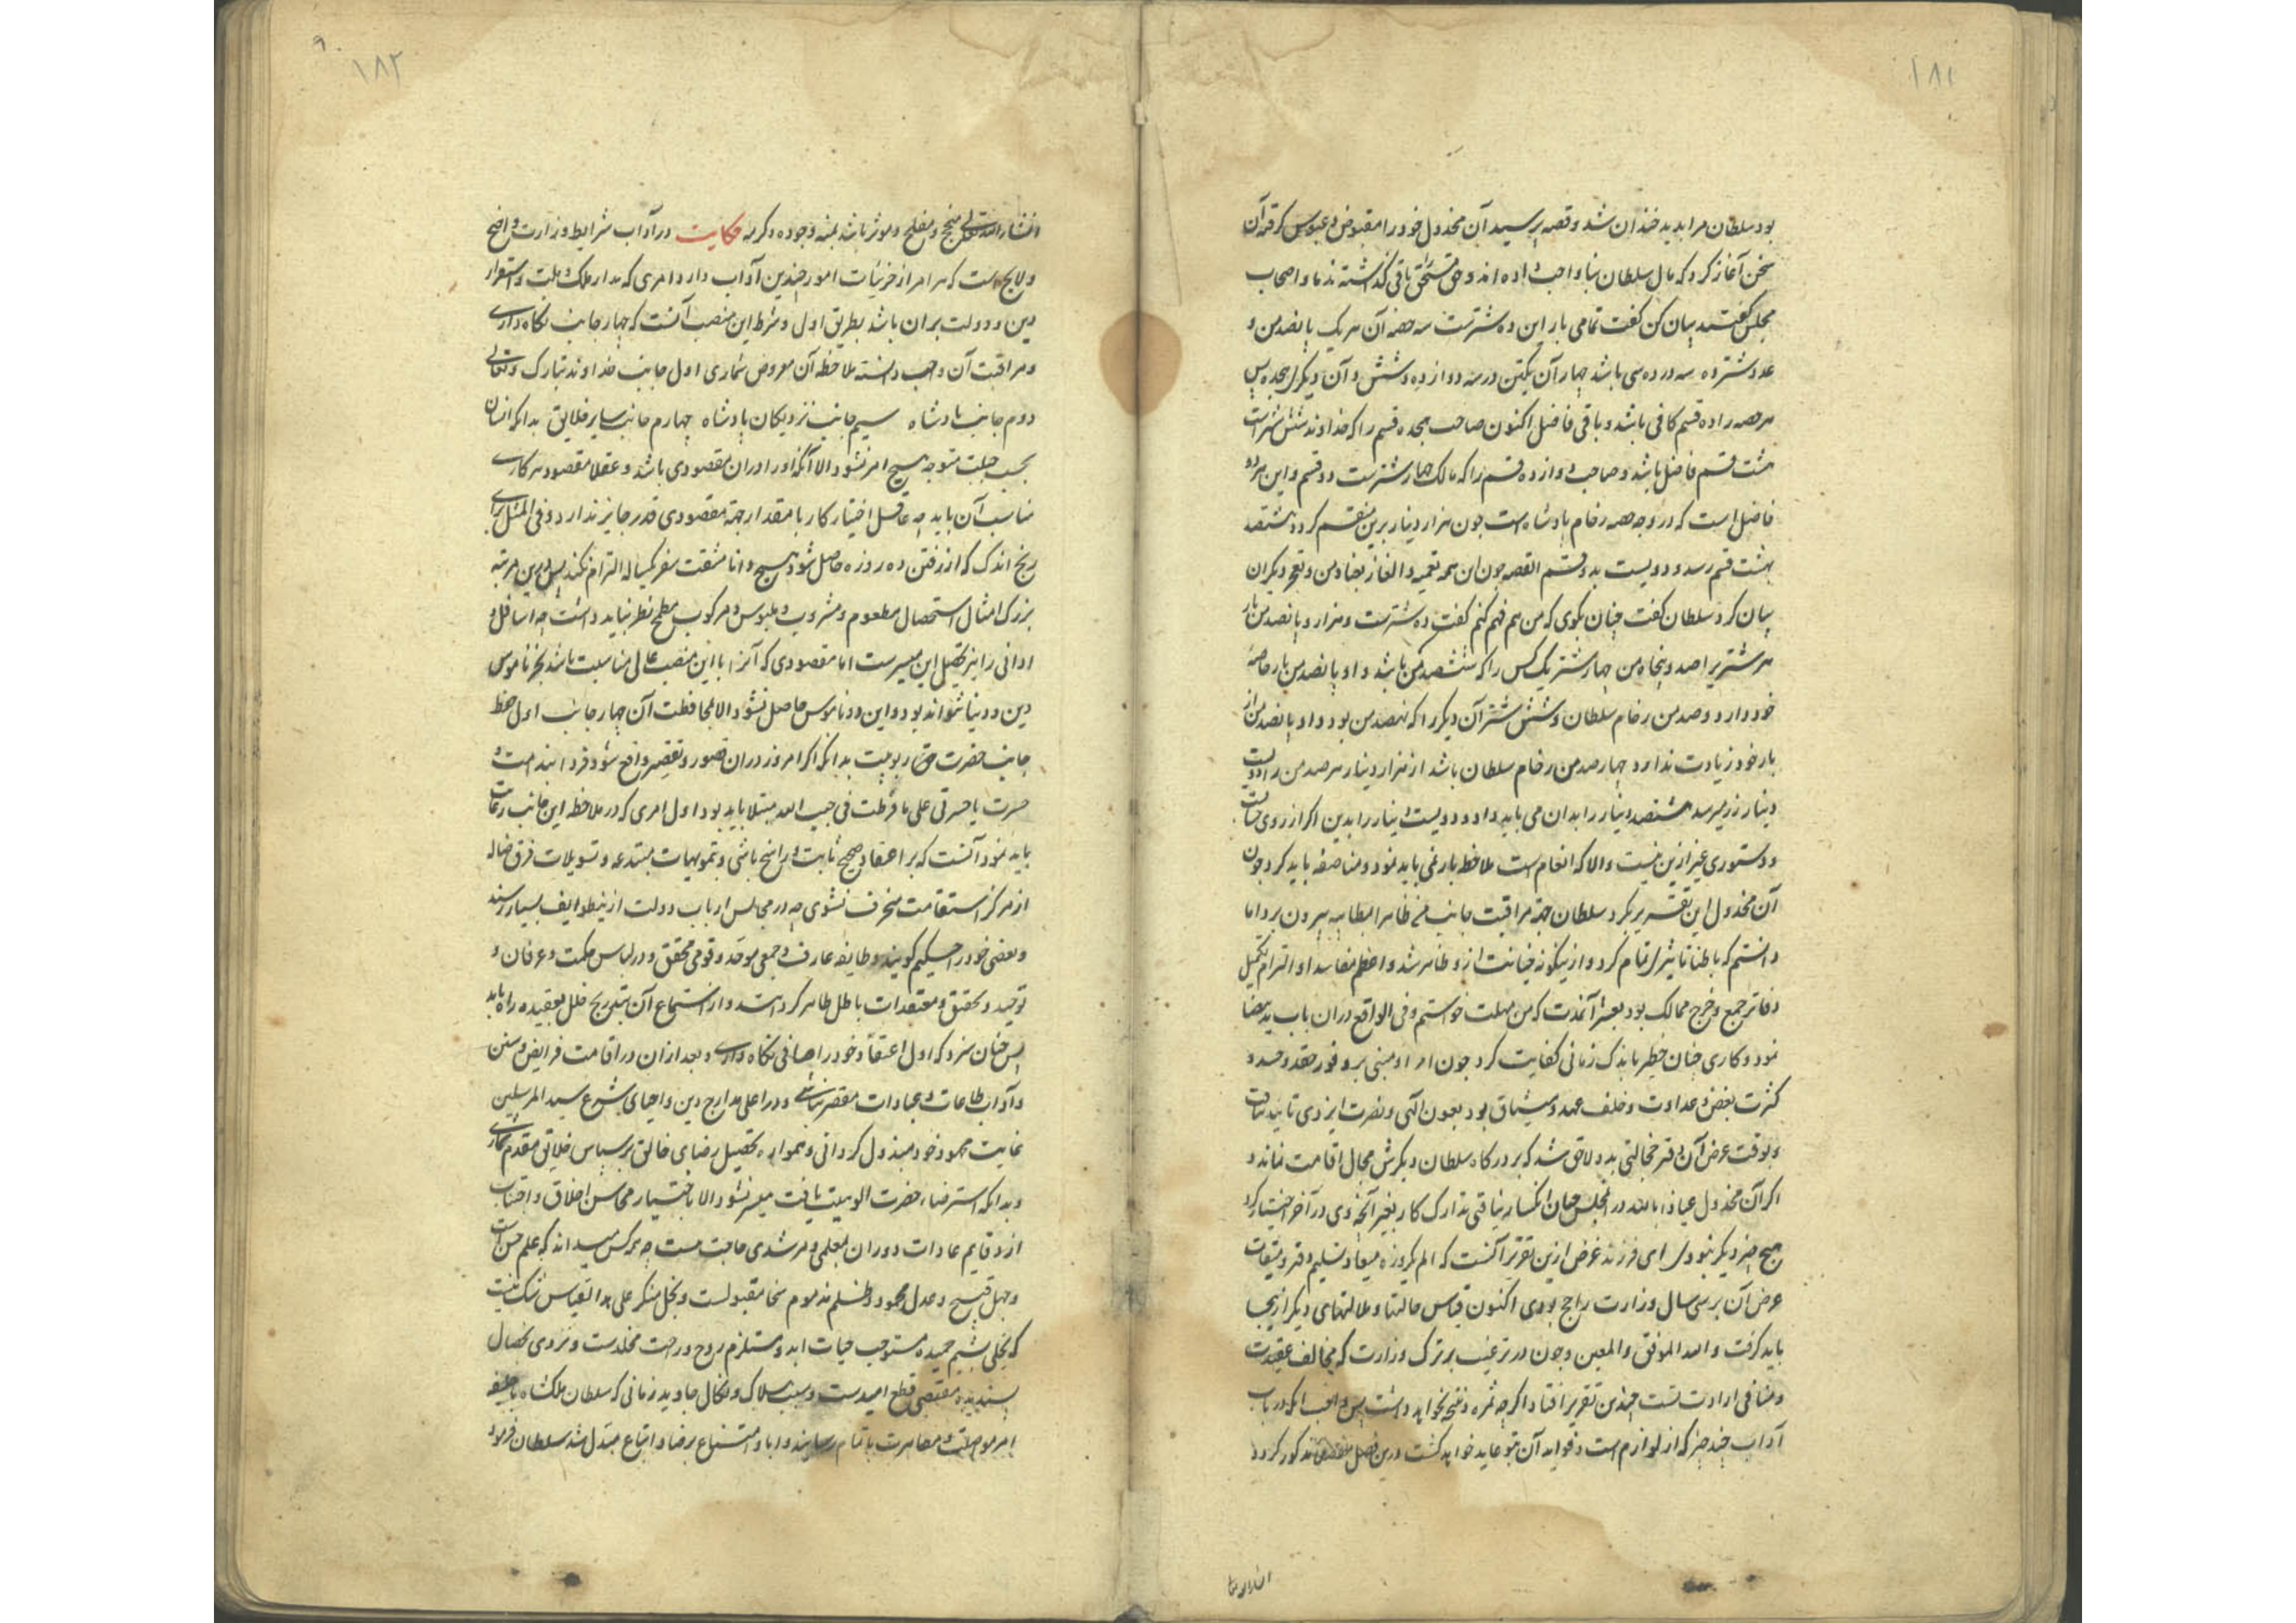 ١٨١
بود سلطان مرا بدید خندان شد و قصه پرسید آن مخذول خود را مقبوض و عبوس کرفته آن
سخن آغاز کرد که مال سلطان بنا واجب داده اند و حق مستحق باقی گذاشته ندما و اصحاب
مجلس گفتند بیان کن گفت تمامی بار این ده شترست سه حصه آن هر یک پانصد من و
عدد شتر ده سه در ده سی باشد چهار آن یکتن در سه دوازده و شش و آن دیکر هجده پس
هر حصه را ده قسم کافی باشد و باقی فاضل اکنون صاحب هجده قسم را که خداوند شش شترست
هشت قسم فاضل باشد و صاحب دوازده قسم را که مالک چهار شترست دو قسم و این هر ده
فاضل است که در وجه حصه رخام پادشاه است چون هزار دینار برین منقسم کردد هشتصد
بهشت قسم رسد و دویست بدو قسم القصه چون این همه تعمیه و الغاز بعناد من و تعجیز دیکران
بیان کرد سلطان گفت چنان بکوی که من هم فهم کنم گفت ده شترست و هزار و پانصد من بار
هر شتریرا صد و پنجاه من چهار شتر یک کس را که ششصد من باشد و او پانصد من بار خاصهٔ
خود دارد و صد من رخام سلطان و شش شتر آن دیکر را که نهصد من بود و او پانصد من از
بار خود زیادت ندارد چهار صد من رخام سلطان باشد از هزار دینار هر صد من را دویست
دینار زر میرسد هشتصد دینار را بدان می باید داد و دویست دینار را بدین اکر از روی حساب
و دستوری غیر ازین نیست والا که انعام است ملاحظه بار نمی باید نمود و مناصفه باید کرد چون
آن مخذول این تقریر بکرد سلطان جهة مراقبت جانب من ظاهرا بمطایبه بیرون برد اما
دانستم که باطنا تاثیر تمام کرد و ازینکونه خیانت ازو ظاهر شد و اعظم مفاسد او التزام تکمیل
دفاتر جمع و خرج ممالک بود بعشر آنمدت که من مهلت خواستم و فی الواقع دران باب ید بیضا
نمود و کاری چنان خطیر باندک زمانی کفایت کرد چون امر او مبنی بر وفور حقد و حسد و
کثرت بغض و عداوت و خلف عهد و میثاق بود بعون الهی و نصرت ایزدی تایید نیافت
و بوقت عرض آن دفتر خجالتی بدو لاحق شد که بر درکاه سلطان دیکرش مجال اقامت نماند و
اکر آن مخذول عیاذا بالله در انمجلس همان انکسار نیافتی تدارک کار بغیر آنچه وی در آخر اختیار کرد
هیچ چیز دیکر نبودی ای فرزند غرض ازین تقریر آنست که الم یکروزه میعاد تسلیم دفتر و میقات
عرض آن بر سی سال وزارت راجح بودی اکنون قیاس حالتها و ملالتهای دیکر ازینجا
باید کرفت والله الموفق والمعین و چون در ترغیب بر ترک وزارت که مخالف عقیدت
و منافی ارادت تست چندین تقریر افتاد اکرچه ثمره و نتیجه نخواهد داشت پس واجب انکه در باب
آداب چند چیز که از لوازم است و فواید آن بتو عاید خواهد کشت درین فصل مذکور کردد
انشاءالله
١٨٢
انشاءالله تعالی منجح و مفلح و موثر باشد بمنه وجوده و کرمه حکایت در آداب شرایط وزارت واضح
و لایح است که هر امر از جزئیات امور چندین آداب دارد امری که مدار ملک و ملت و استقرار
دین و دولت بران باشد بطریق اول و شرط این منصب آنست که چهار جانب نکاه داری
و مراقبت آن واجب دانسته ملاحظه آن مفروض شماری اول جانب خداوند تبارک و تعالی
دوم جانب پادشاه سیم جانب نزدیکان پادشاه چهارم جانب سایر خلایق بدانکه انسان
بحسب جبلت متوجه هیچ امر نشود الا آنکه او را دران مقصودی باشد و عقلا مقصود هر کاری
مناسب آن باید چه عاقل اختیار کار با مقدار جهة مقصودی قدر جایز ندارد و فی المثل برای
رنج اندک که از رفتن ده روزه حاصل شود هیچ دانا مشقت سفر یکساله التزام نکند پس درین مرتبه
بزرک امثال استحصال مطعوم و مشروب و ملبوس و مرکوب مطمح نظر نباید داشت چه اسافل و
ادانی را نیز تحصیل این میسرست اما مقصودی که آنرا با این منصب عالی مناسبت باشد بجز ناموس
دین و دنیا نتواند بود و این دو ناموس حاصل نشود الا بمحافظت آن چهار جانب اول حفظ
جانب حضرت حق ربوبیت بدانکه اکر امروز دران قصور و تقصیر واقع شود فردا بندامت و
حسرت یا حسرتی علی ما فرطت فی جنب الله مبتلا باید بود اول امری که در ملاحظه این جانب رعایت
باید نمود آنست که بر اعتقاد صحیح ثابت و راسخ باشی و بتمویهات مبتدعه و تسویلات فرق ضاله
از مرکز استقامت منحرف نشوی چه در مجالس ارباب دولت ازینطوایف بسیار رسند
و بعضی خود را حکیم کویند و طایفه عارف و جمعی موحد و قومی محقق و در لباس حکمت و عرفان و
توحید و تحقیق معتقدات باطل ظاهر کردانند و از استماع آن بتدریج خلل بعقیده راه یابد
پس چنان سزد که اول اعتقاد خود را صافی نکاه داری و بعد ازان در اقامت فرایض و سنن
و آداب طاعات و عبادات مقصر نباشی و در اعلی مدارج دین و احیای شرع سید المرسلین
غایت مجهود خود مبذول کردانی و همواره تحصیل رضای خالق بر سپاس خلایق مقدم شماری
و بدانکه استرضاء حضرت الوهیت یافت میسر نشود الا باختیار محاسن اخلاق و اجتناب
از ذمایم عادات دوران بمعلمی و مرشدی حاجت نیست چه هر کس میداند که علم حسن است
و جهل قبیح و عدل محمود و ظلم مذموم سخا مقبولست و بخل منکر علی هذا القیاس شک نیست
که تحلی بشیم حمیده مستوجب حیات ابد و مستلزم روح و راحت مخلدست و تردی بخصال
ناپسندیده مقتضی قطع امیدست و سبب هلاک و نکال جاوید زمانی که سلطان ملکشاه با خلیفه
امر مواصلت و مصاهرت باتمام رسانید و ابا و امتناع برضا و اتباع مبدل شد سلطان فرمود